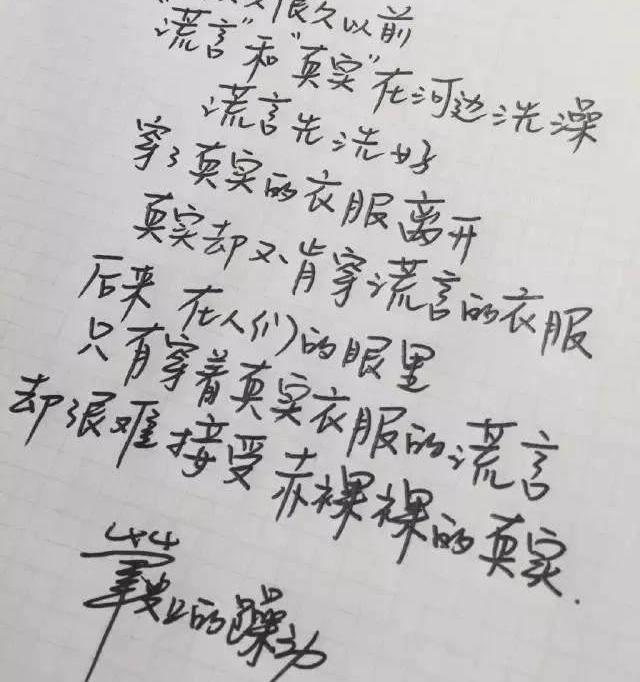 很久以前
谎言”和“真实”在河边洗澡
谎言先洗好
穿了真实的衣服离开
真实却不肯穿谎言的衣服
后来 在人们的眼里
只有穿着真实衣服的谎言
却很难接受赤裸裸的真实.
的躁动